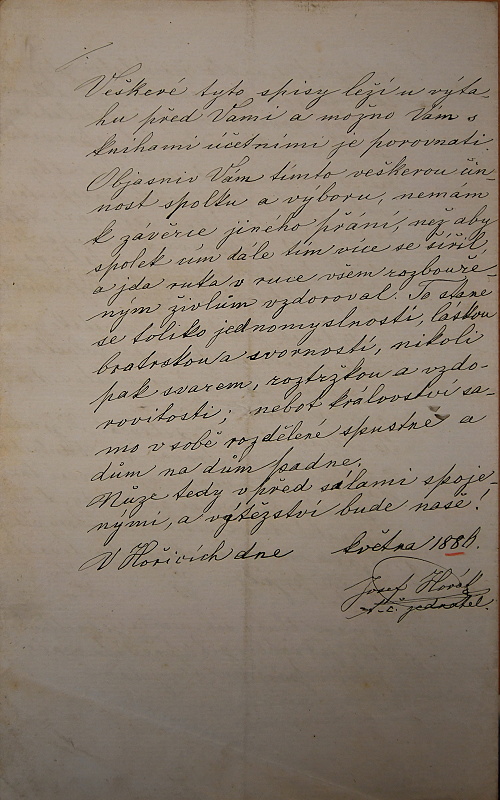 Veškeré tyto spisy leží u výta-
hu před Vámi a možno Vám s
knihami účetními je porovnati.
Objasniv Vám tímto veškerou čin-
nost spolku a výboru, nemám
k závěrce jiného přání, než aby
spolek čím dále tím více se šířil,
a jda ruka v ruce všem rozbouře-
ným živlům vzdoroval. To stane
se toliko jednomyslností, láskou
bratrskou a svorností, nikoli
pak svarem, roztržkou a vzdo-
rovitostí; neboť království sa-
mo v sobě rozdělené spustne a
dům na dům padne.
Nuže tedy v před silami spoje-
nými, a vítězství bude naše!
V Hořicích dne května 1886.
Josef Horák
t. č. jednatel.